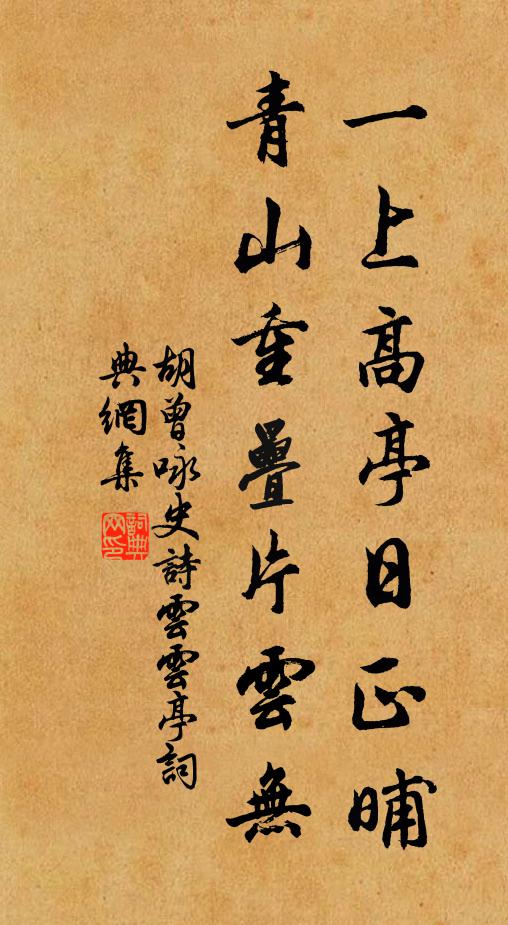 一上高亭日正晡
青山重疊片雲無
胡曾咏史詩雲雲亭詞
典網集
詞典网印